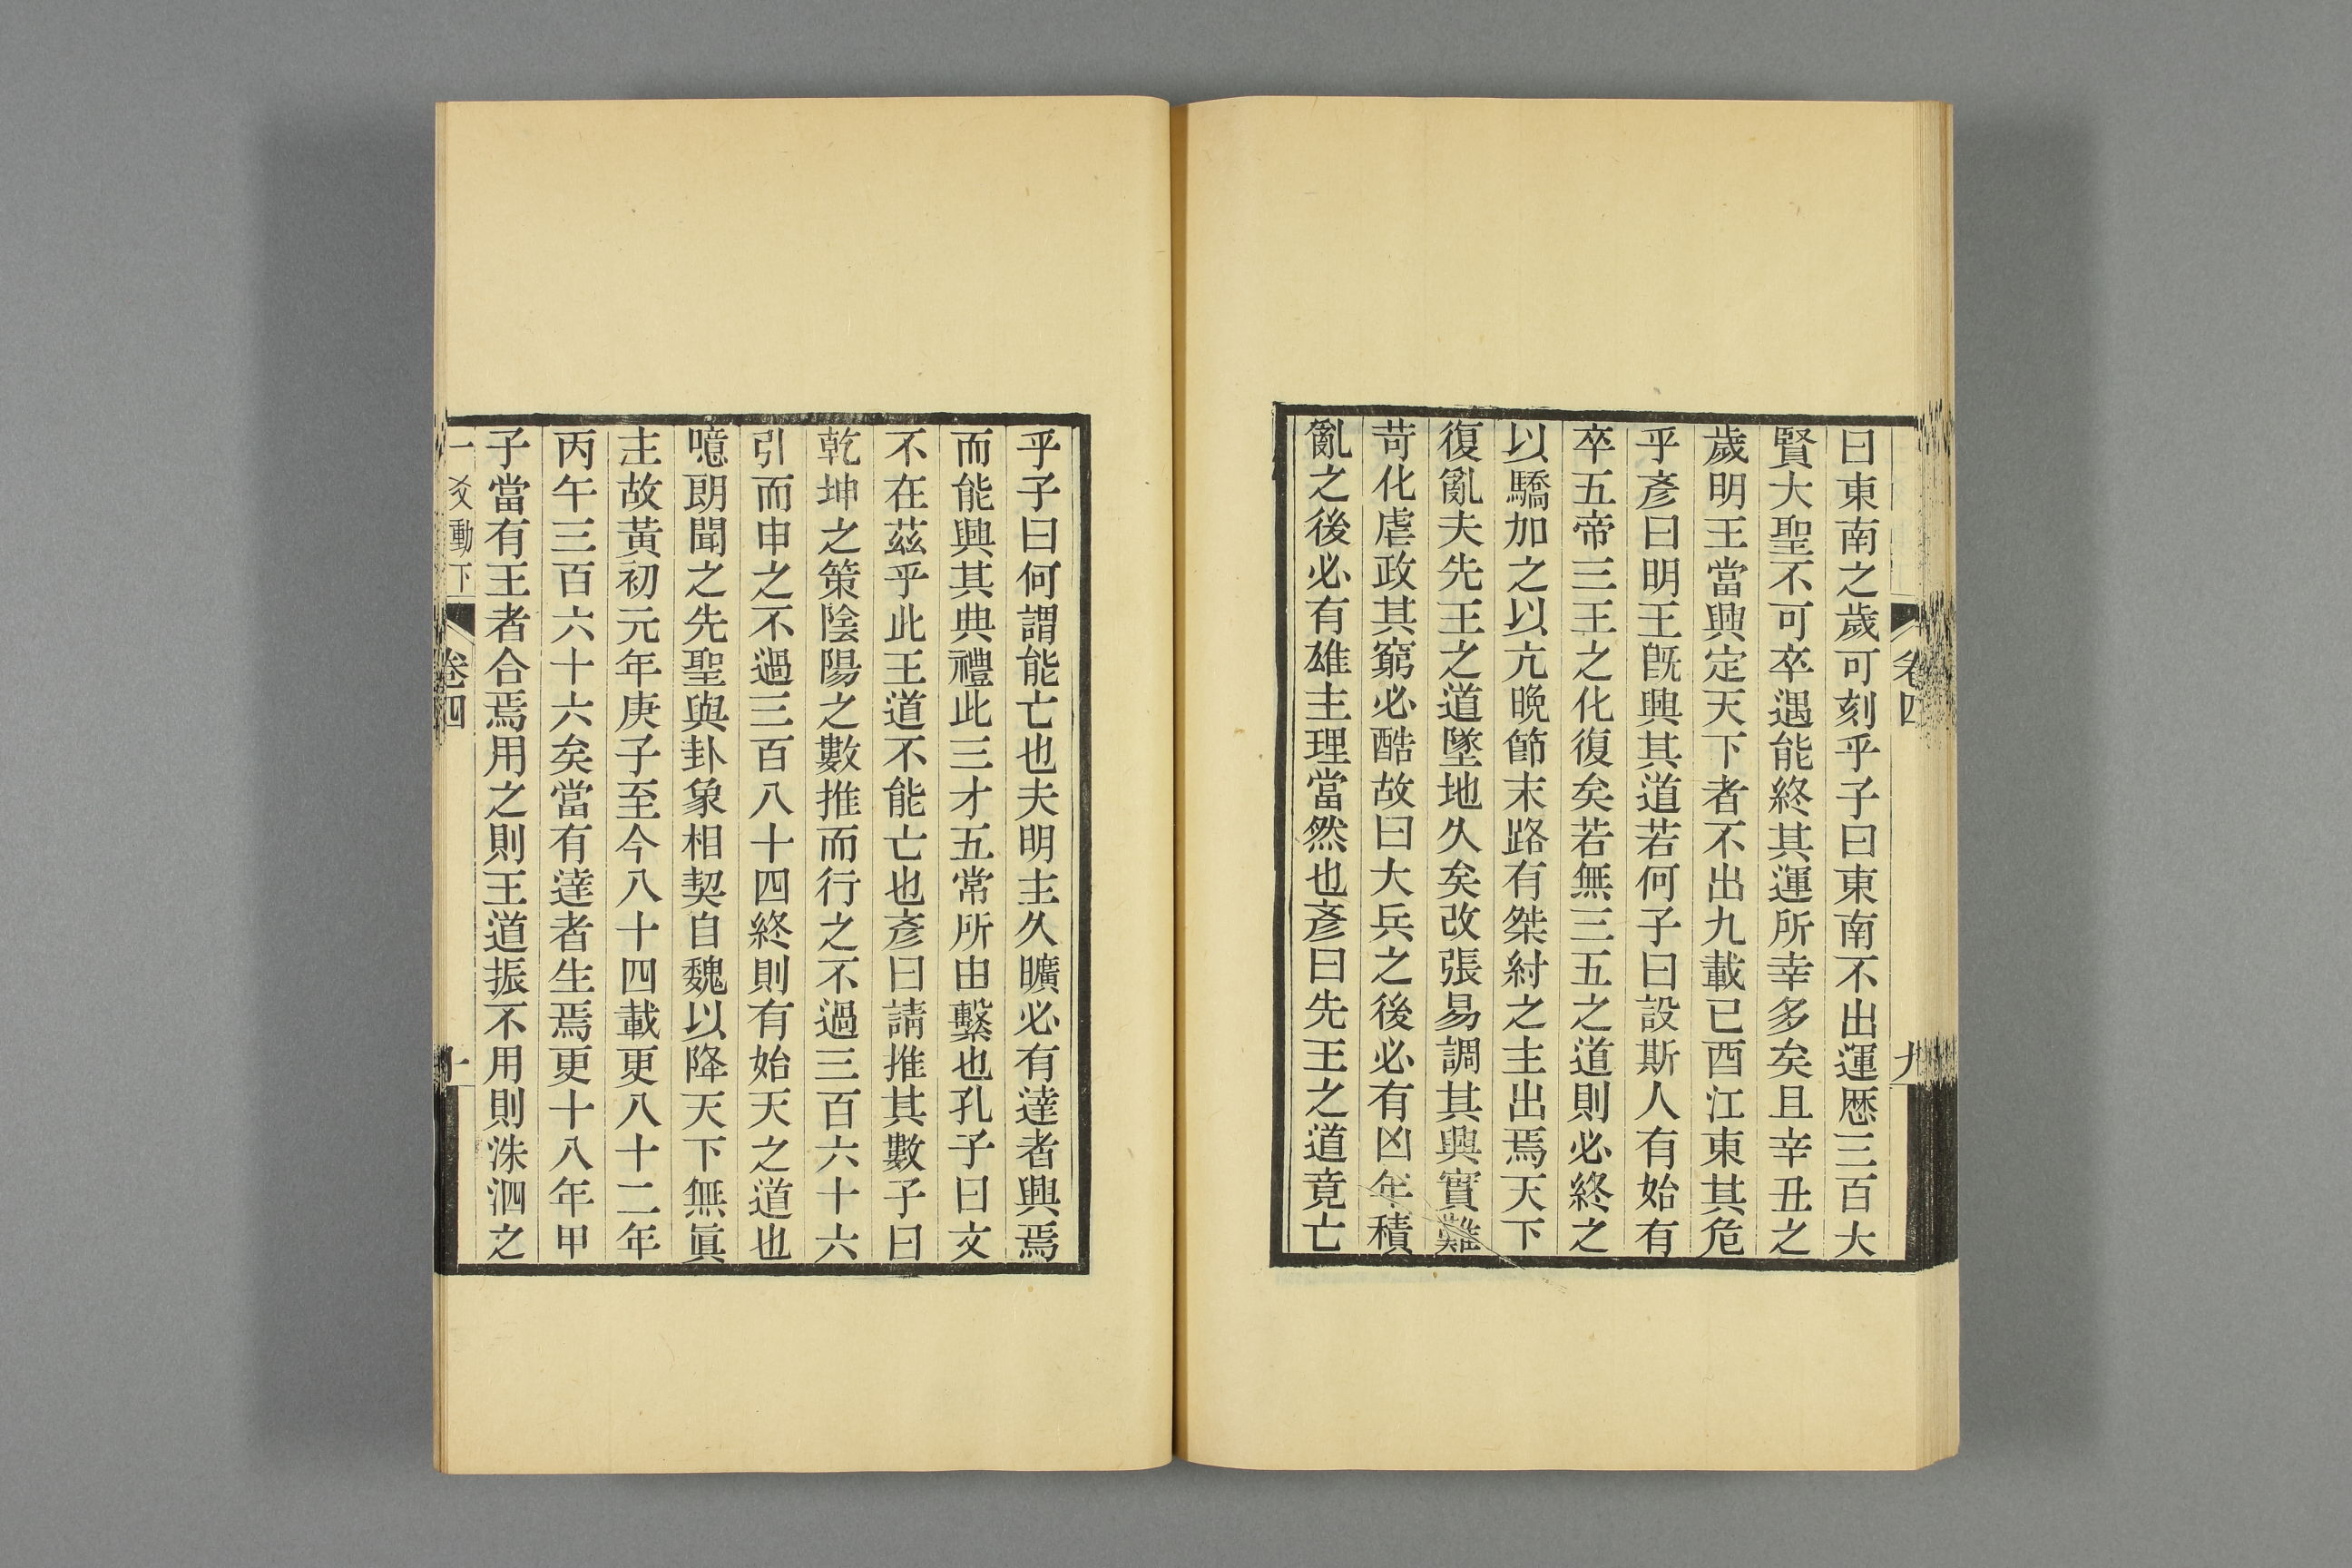 卷四
九
曰東南之歲可刻乎子曰東南不出運厯三百大
賢大聖不可卒遇能終其運所幸多矣且辛丑之
歲明王當興定天下者不出九載已酉江東其危
乎彥曰明王旣興其道若何子曰設斯人有始有
卒五帝三王之化復矣若無三五之道則必終之
以驕加之以亢晚節末路有桀紂之主出焉天下
復亂夫先王之道墜地久矣改張易調其興實難
苛化虐政其窮必酷故曰大兵之後必有凶年積
亂之後必有雄主理當然也彥曰先王之道竟亡
乎子曰何謂能亡也夫明主久曠必有達者興焉
而能興其典禮此三才五常所由繫也孔子曰文
不在茲乎此王道不能亡也彥曰請推其數子曰
乾坤之策陰陽之數推而行之不過三百六十六
引而申之不過三百八十四終則有始天之道也
噫朗聞之先聖與卦象相契自魏以降天下無眞
主故黃初元年庚子至今八十四載更八十二年
丙午三百六十六矣當有達者生焉更十八年甲
子當有王者合焉用之則王道振不用則洙泗之
爻動下
卷四
十